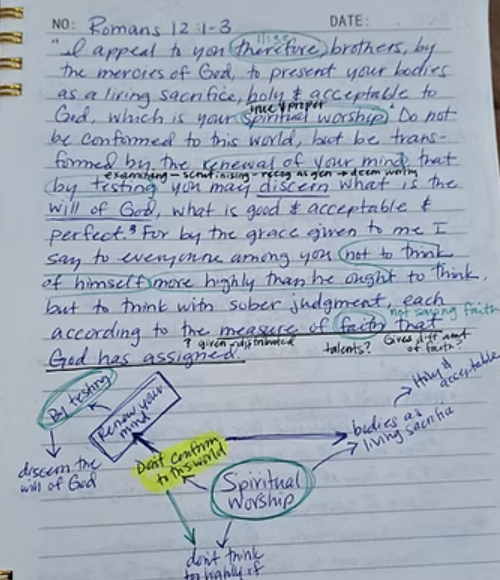 NO: Romans 12:1-3 DATE:
"I appeal to you therefore, brothers, by
the mercies of God, to present your bodies
as a living sacrifice, holy & acceptable to
true & proper
God, which is your spiritual worship. ² Do not
be conformed to this world, but be trans-
formed by the renewal of your mind, that
examining - scrutinising - recog as gen → deem worthy
by testing you may discern what is the
will of God, what is good & acceptable &
perfect. ³ For by the grace given to me I
say to everyone among you not to think
of himself more highly than he ought to think,
but to think with sober judgment, each
not saying faith
according to the measure of faith that
? given - distributed talents? Gives diff amt of faith?
God has assigned.
By testing
Renew your mind
discern the will of God
Don't confirm to this world
Spiritual worship
bodies as living sacrifice
acceptable
don't think
highly of